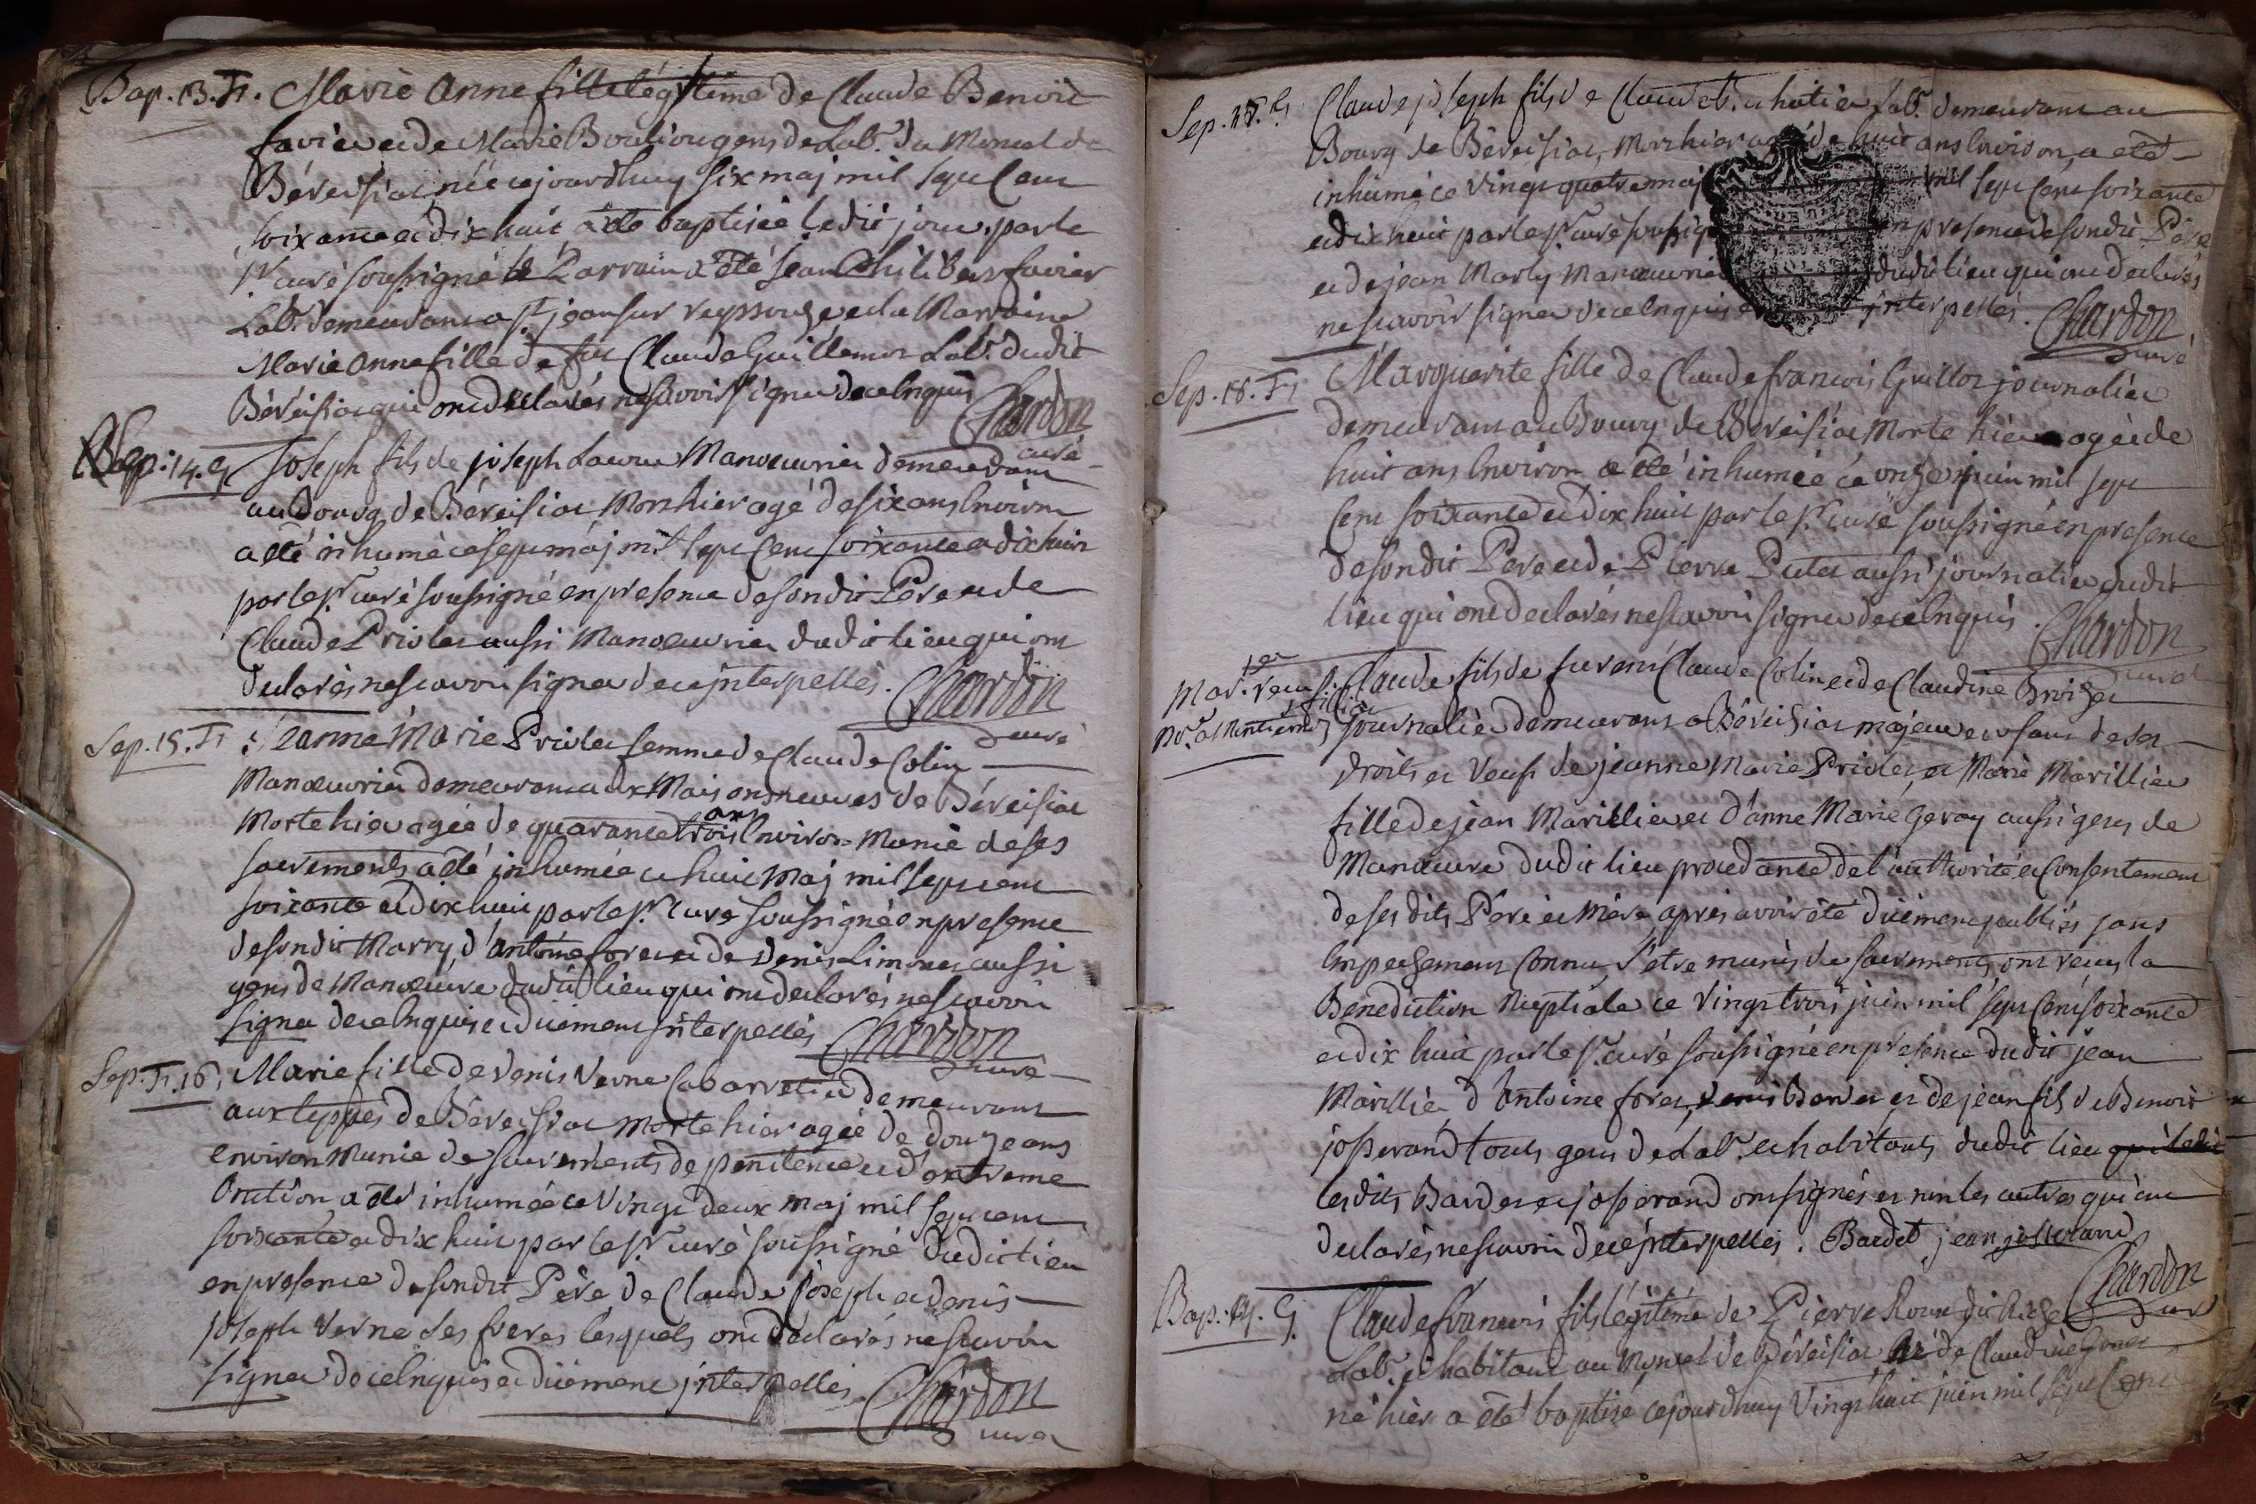 Bap. 13. F. Marie Anne fille légitime de Claude Benoit
favier et de Marie Bouliou gens de Lab.r du Moncel de
Béreisiat, née cejourdhuy six maj mil sept Cent
soixante et dix huit a été baptisée ledit jour parle
sr curé soussigné le Parrain a été jean Philibert favier
Lab.r demeurant a st jean sur reyssouze et la Marraine
Marie Anne fille de feu Claude Guillemot Lab.r dudit
Béréisiat qui ont declarés ne savoir signer de ce Enquis
Chardon
curé
Sep. 14. G. Joseph fils de joseph Manoeuvrier demeurant
au Bourg de Béreisiat Mort hier agé de six ans Environ
a été inhumé ce sept maj mil sept Cent soixante et dix huit
par le sr curé soussigné en presence de son dit Père et de
Claude Priolet aussi Manoeuvrier dudit lieu qui ont
declarés ne scavoir signer de ce jnterpellés. Chardon
curé
Sep. 15. F. jeanne Marie Priolet femme de Claude Colin
Manoeuvrier demeurant aux Maisons neuves de Béreisiat
ans
Morte hier agée de quarante trois Environ Munie de ses
sacrements a été inhumée ce huit Maj mil sept cent
soixante et dix huit par le sr curé soussigné en presence
de son dit Marry, d'antoine foret et de denis Limonet aussi
gens de Manoeuvre dudit lieu qui ont declarés ne scavoir
signer de ce Enquis et düement jnterpellés Chardon
curé
Sep. F. 16. Marie fille de denis Verne Cabarretier demeurant
aux teppes de Béreisiat Morte hier agée de douze ans
environ Munie de sacrements de penitence et d'extreme
Onction a été inhumée ce Vingt deux maj mil sept cent
soixante et dix huit par le sr curé soussigné dudit lieu
en presence de son dit Père de Claude joseph et denis
joseph Verne ses freres lesquels ont déclarés ne scavoir
signer de ce Enquis et düement jnterpellés. Chardon
curé
Sep. 17. G. Claude joseph fils de Claude Lab.r demeurant au
Bourg de Béreisiat, Mort hier agé de huit ans Environ, a été
inhumé ce Vingt quatre maj mil sept Cent soixante
et dix huit par le sr curé soussigné en presence de son dit Père
et de jean Marly Manoeuvrier dudit lieu qui ont declarés
ne scavoir signer de ce Enquis et jnterpellés. Chardon
curé
Sep. 18. F. Marguerite fille de Claude francois Guillot journalier
demeurant au Bourg de Béreisiat Morte hier agée de
huit ans Environ a été inhumée ce onze juin mil sept
Cent soixante et dix huit par le sr curé soussigné en presence
de son dit Père et de Pierre Putet aussi journalier dudit
lieu qui ont declarés ne scavoir signer de ce Enquis. Chardon
curé
1er
Mar. veuf Claude fils de furent Claude Colin et de Claudine Broizet
journalier demeurant a Béreisiat majeur usant de ses
droits et Veuf de jeanne Marie Priolet, et Marie Marillier
fille de jean Marillier et d'anne Marie Geray aussi gens de
Manoeuvre dudit lieu procedante de l'authorité et Consentement
de ses dits Père et Mère apres avoir été düement publiés sans
Empechement Connu, s'etre munis de sacrements, ont recus la
Benediction Nuptiale ce Vingt trois juin mil sept Cent soixante
et dix huit par le sr curé soussigné en presence dudit jean
Marillier d'Antoine foret, denis Bardet et de jean fils de Benoit
josserand touts gens de Lab.r et habitants dudit lieu qui ledit
lesdits Bardet et josserand ont signés et non les autres qui ont
declarés ne scavoir de ce jnterpellés. Bardet jean josserand
Chardon
curé
Bap. 14. G. Claude francois fils légitime de Pierre
Lab.r et habitant au Moncel de Béréisiat et de Claudine
né hier a été baptizé cejourdhuy Vingt huit juin mil sept Cent